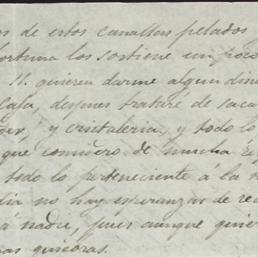 os de estos canallas pelados
fortuna los sostiene un poco
SS. quieren darme algun dine
Casa, despues trataré de saca
y cristaleria, y todo lo
que considero de mucha
todo lo perteneciente a la
dia no hay esperanzas de rec
á nadie, pues aunque quier
mas quiebras.